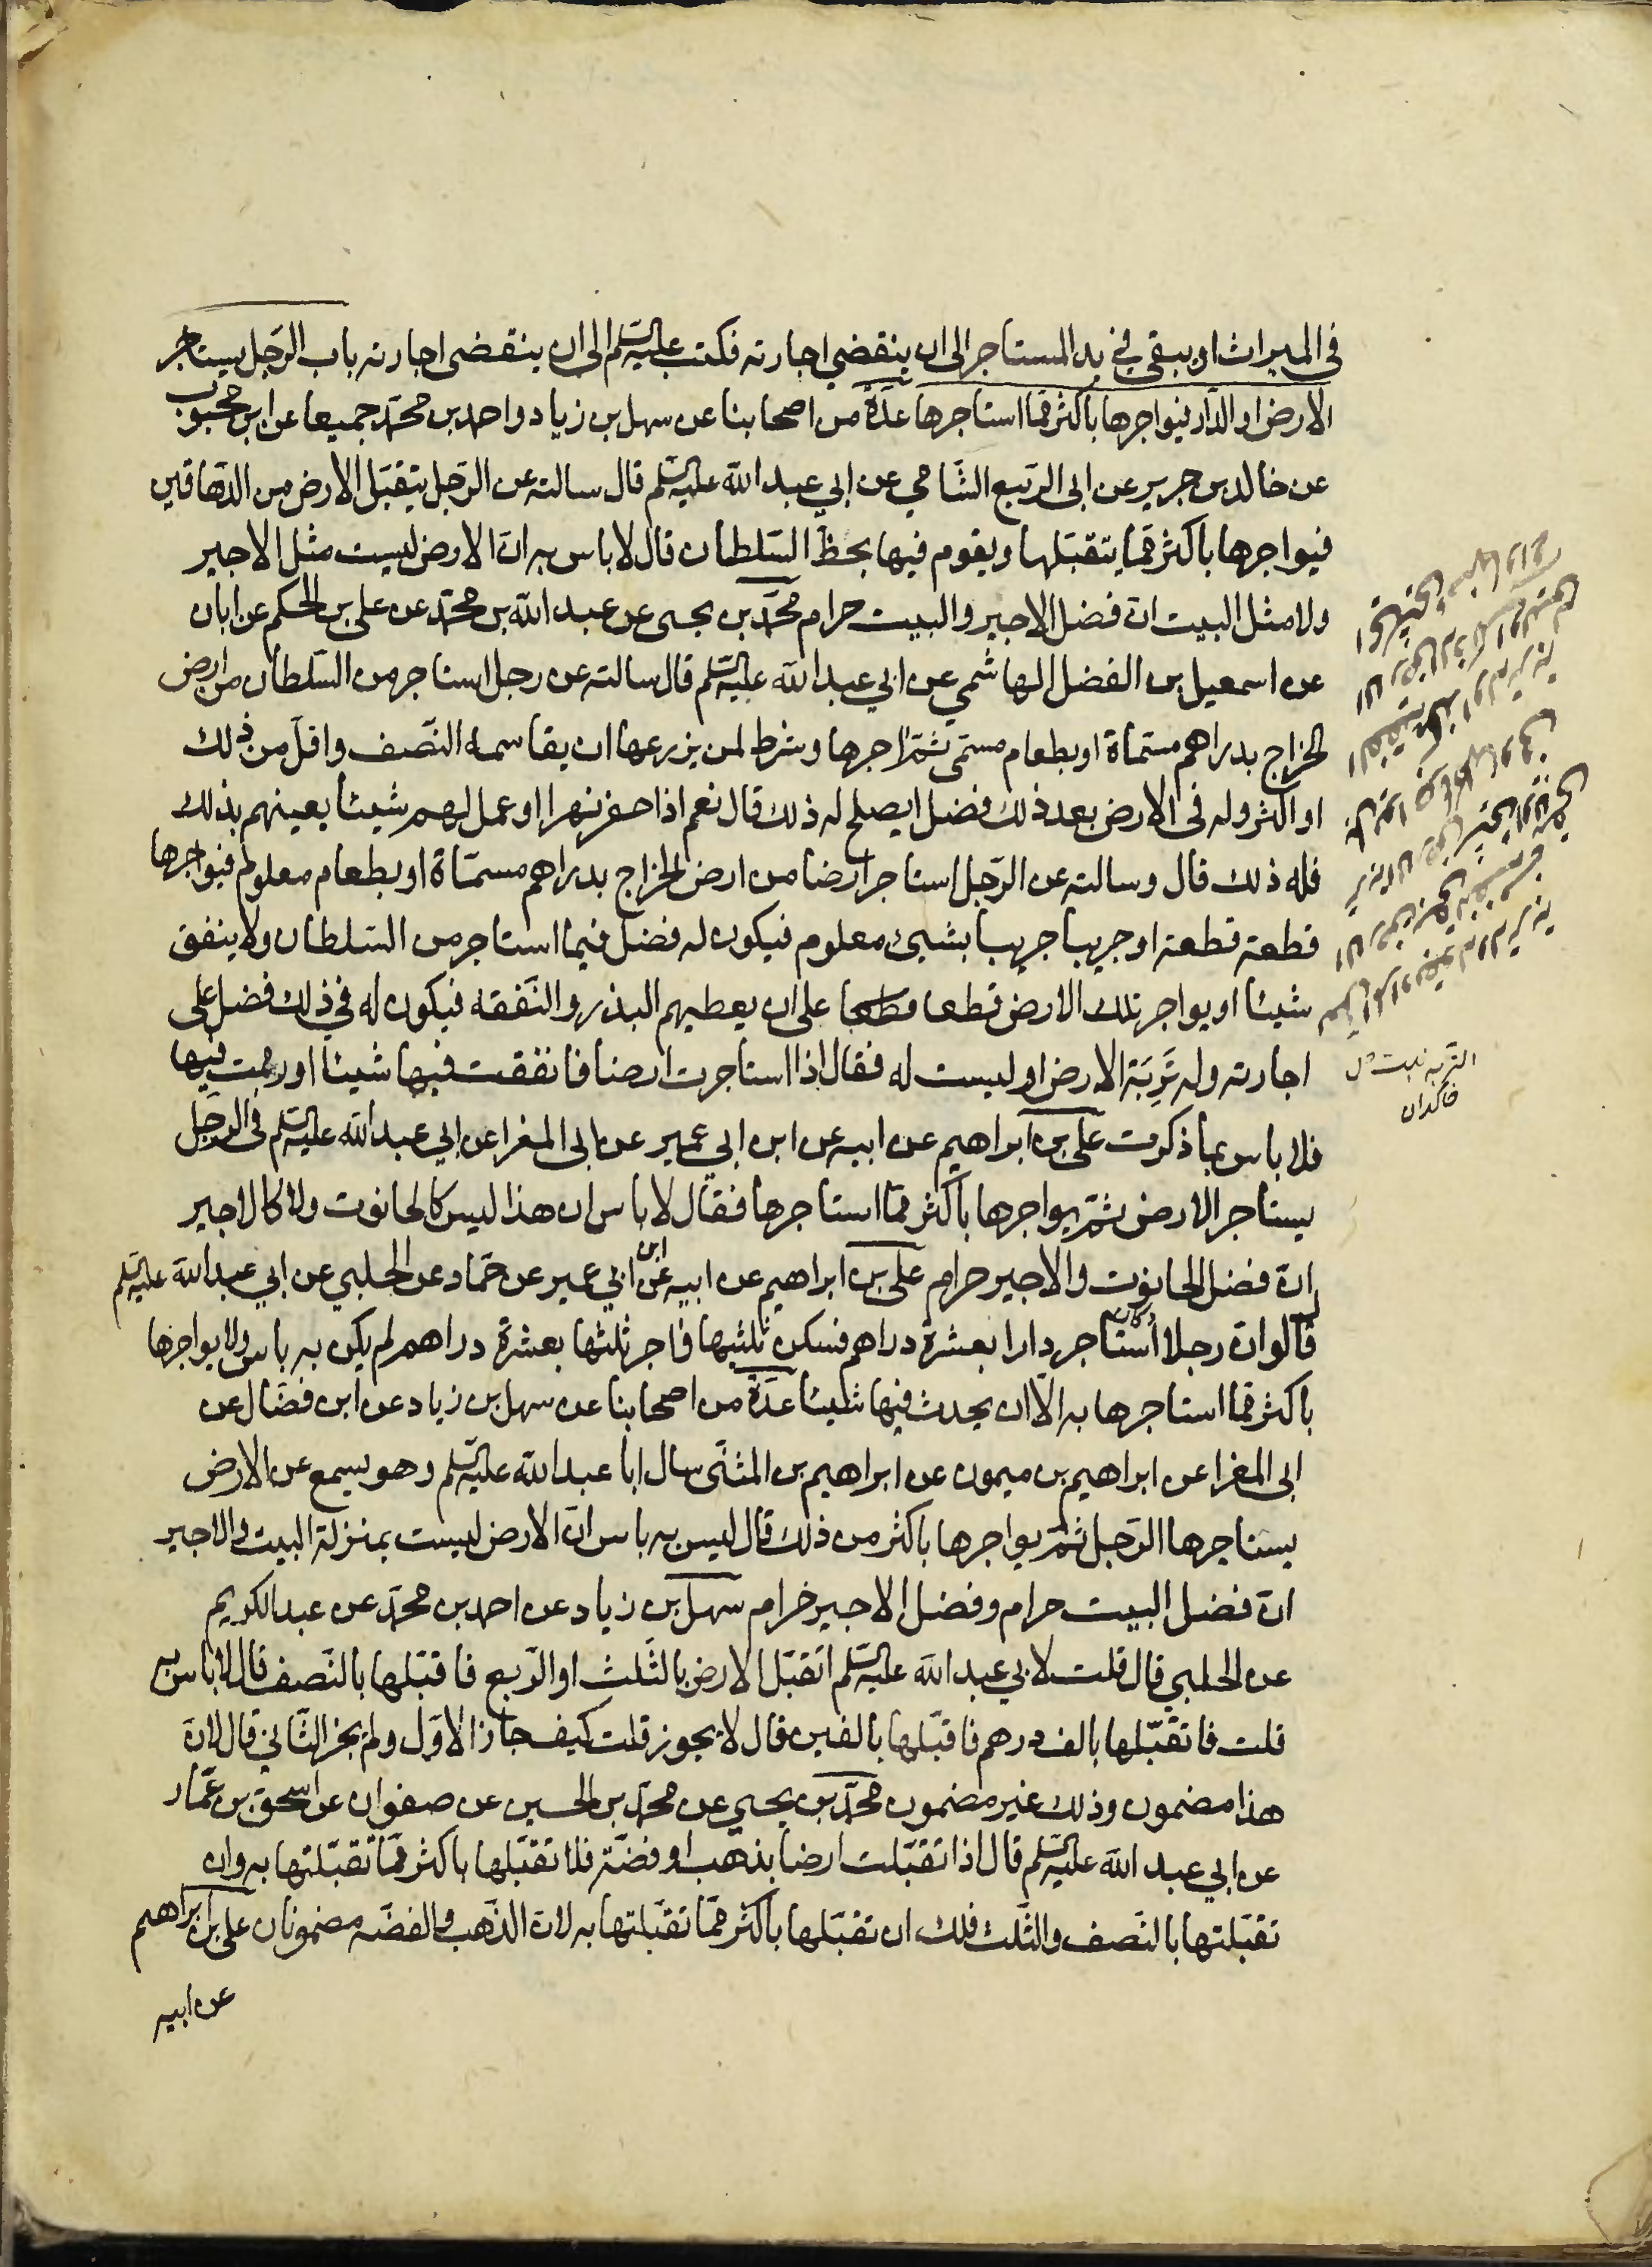 في الميراث او يبقى في يد المستاجر الى ان ينقضي اجارته فكتب عليه السلم الى ان ينقضى اجارته باب الرجل يستاجر
الارض او الدار فيواجرها باكثر مما استاجرها عدة من اصحابنا عن سهل بن زياد واحمد بن محمد جميعا عن ابن محبوب
عن خالد بن جرير عن ابى الربيع الشامي عن ابي عبد الله عليه السلم قال سالته عن الرجل يتقبل الارض من الدهاقين
فيواجرها باكثر مما يتقبلها ويقوم فيها بحظ السلطان قال لا باس به ان الارض ليست مثل الاجير
ولا مثل البيت ان فضل الاجير والبيت حرام محمد بن يحيى عن عبد الله بن محمد عن على بن الحكم عن ابان
عن اسمعيل بن الفضل الهاشمي عن ابي عبد الله عليه السلم قال سالته عن رجل استاجر من السلطان من ارض
الخراج بدراهم مسماة او بطعام مسمى ثم اجرها وشرط لمن يزرعها ان يقاسمه النصف واقل من ذلك
او اكثر وله فى الارض بعد ذلك فضل ايصلح له ذلك قال نعم اذا حفر نهرا او عمل لهم شيئا يعينهم بذلك
فله ذلك قال وسالته عن الرجل استاجر ارضا من ارض الخراج بدراهم مسماة او بطعام معلوم فيواجرها
قطعة قطعة او جريبا جريبا بشيئ معلوم فيكون له فضل فيما استاجر من السلطان ولا ينفق
شيئا او يواجر تلك الارض قطعا قطعا على ان يعطيهم البذر والنفقه فيكون له في ذلك فضل على
اجارته وله تربة الارض او ليست له فقال اذا استاجرت ارضا فانفقت فيها شيئا او رممت فيها
فلا باس بما ذكرت على بن ابراهيم عن ابيه عن ابن ابي عمير عن ابى المغرا عن ابي عبد الله عليه السلم في الرجل
يستاجر الارض ثم يواجرها باكثر مما استاجرها فقال لا باس ان هذا ليس كالحانوت ولا كالاجير
ان فضل الحانوت والاجير حرام على بن ابراهيم عن ابيه عن ابن ابي عمير عن حماد عن الحلبي عن ابي عبد الله عليه السلم
قال لو ان رجلا استاجر دارا بعشرة دراهم فسكن ثلثيها فاجر ثلثها بعشرة دراهم لم يكن به باس ولا يواجرها
باكثر مما استاجرها به الا ان يحدث فيها شيئا عدة من اصحابنا عن سهل بن زياد عن ابن فضال عن
ابى المغرا عن ابراهيم بن ميمون عن ابراهيم بن المثنى سال ابا عبد الله عليه السلم وهو يسمع عن الارض
يستاجرها الرجل ثم يواجرها باكثر من ذلك قال ليس به باس ان الارض ليست بمنزلة البيت والاجير
ان فضل البيت حرام وفضل الاجير حرام سهل بن زياد عن احمد بن محمد عن عبد الكريم
عن الحلبي قال قلت لابي عبد الله عليه السلم اتقبل الارض بالثلث او الربع فاقبلها بالنصف قال لا باس به
قلت فاتقبلها بالف درهم فاقبلها بالفين قال لا يجوز قلت كيف جاز الاول ولم يجز الثاني قال لان
هذا مضمون وذلك غير مضمون محمد بن يحيي عن محمد بن الحسين عن صفوان عن اسحق بن عمار
عن ابي عبد الله عليه السلم قال اذا تقبلت ارضا بذهب او فضة فلا تقبلها باكثر مما تقبلتها به وان
تقبلتها بالنصف والثلث فلك ان تقبلها باكثر مما تقبلتها به لان الذهب والفضه مضمونان على بن ابراهيم
عن ابيه
خاكدان